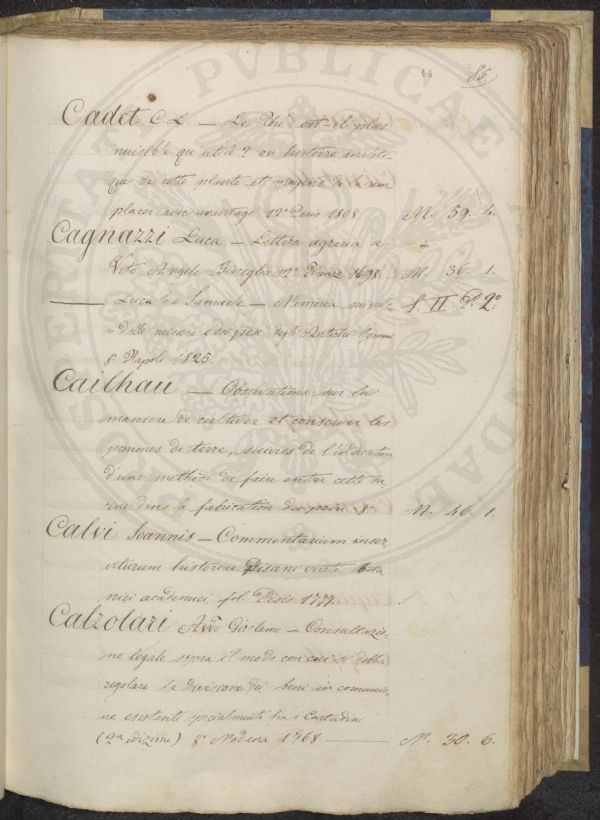 85.
Cadet C. L. — Le Thé est-il plus
nuisible qu'utile? ou histoire analiti-
que de cette plante et moyens de la rem
placer avec avantage 12° Paris 1808 M. 59. 4.
Cagnazzi Luca — Lettera agraria a
Vito Angelo Bisceglia 12° Firenze 1698. M. 36. 1.
—— Luca de Samuele — Memoria sui valo
ri delle misure e dei pesi degli Antichi Romani f. II P. 2°
8° Napoli 1825.
Cailhau — Observations sur la
maniere de cultiver et conserver les
pommes de terre, suivies de l'indication
d'une methode de faire entrer cette ra
cine dans la fabrication du pain 8° M. 46. 1.
Calvi Joannis — Commentarium inser
viturum historiae Pisani vireti bota
nici academici fol. Pisis 1777.
Calzolari Avvo Girolamo — Consultazio
ne legale sopra il modo con cui si debba
regolare la divisione dei beni in comunio
ne esistenti specialmente fra i Contadini
(2a edizione) 8° Modena 1768 —— M. 30. 6.
PROSPERITATI PUBLICAE